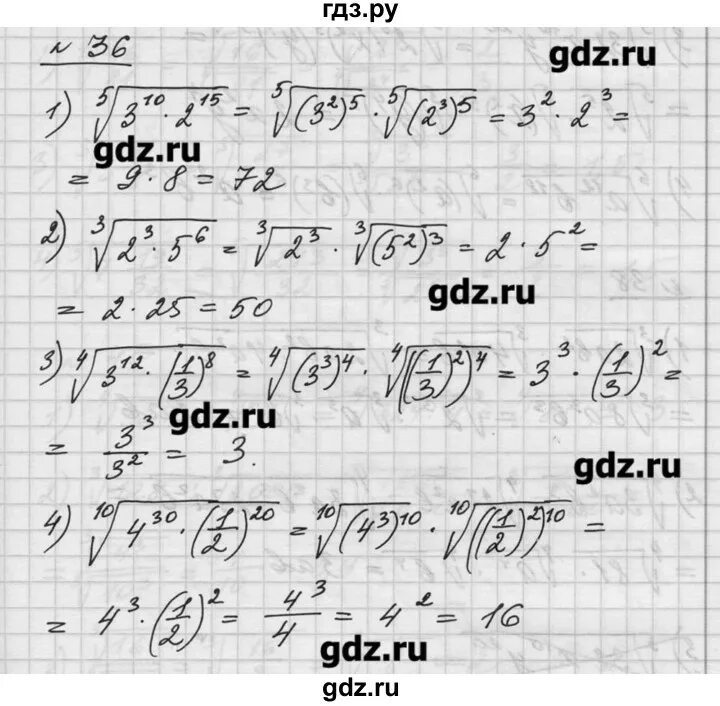 гдз.ру
№ 36
gdz.ru
1) ⁵√(3¹⁰ · 2¹⁵) = ⁵√((3²)⁵) · ⁵√((2³)⁵) = 3² · 2³ =
gdz.ru
= 9 · 8 = 72
2) ³√(2³ · 5⁶) = ³√(2³) · ³√((5²)³) = 2 · 5² =
gdz.ru
= 2 · 25 = 50
3) ⁴√(3¹² · (1/3)⁸) = ⁴√((3³)⁴) · ⁴√(((1/3)²)⁴) = 3³ · (1/3)² =
gdz.ru
= 3³/3² = 3.
gdz.ru
4) ¹⁰√(4³⁰ · (1/2)²⁰) = ¹⁰√((4³)¹⁰) · ¹⁰√(((1/2)²)¹⁰) =
= 4³ · (1/2)² = 4³/4 = 4² = 16
gdz.ru
gdz.ru